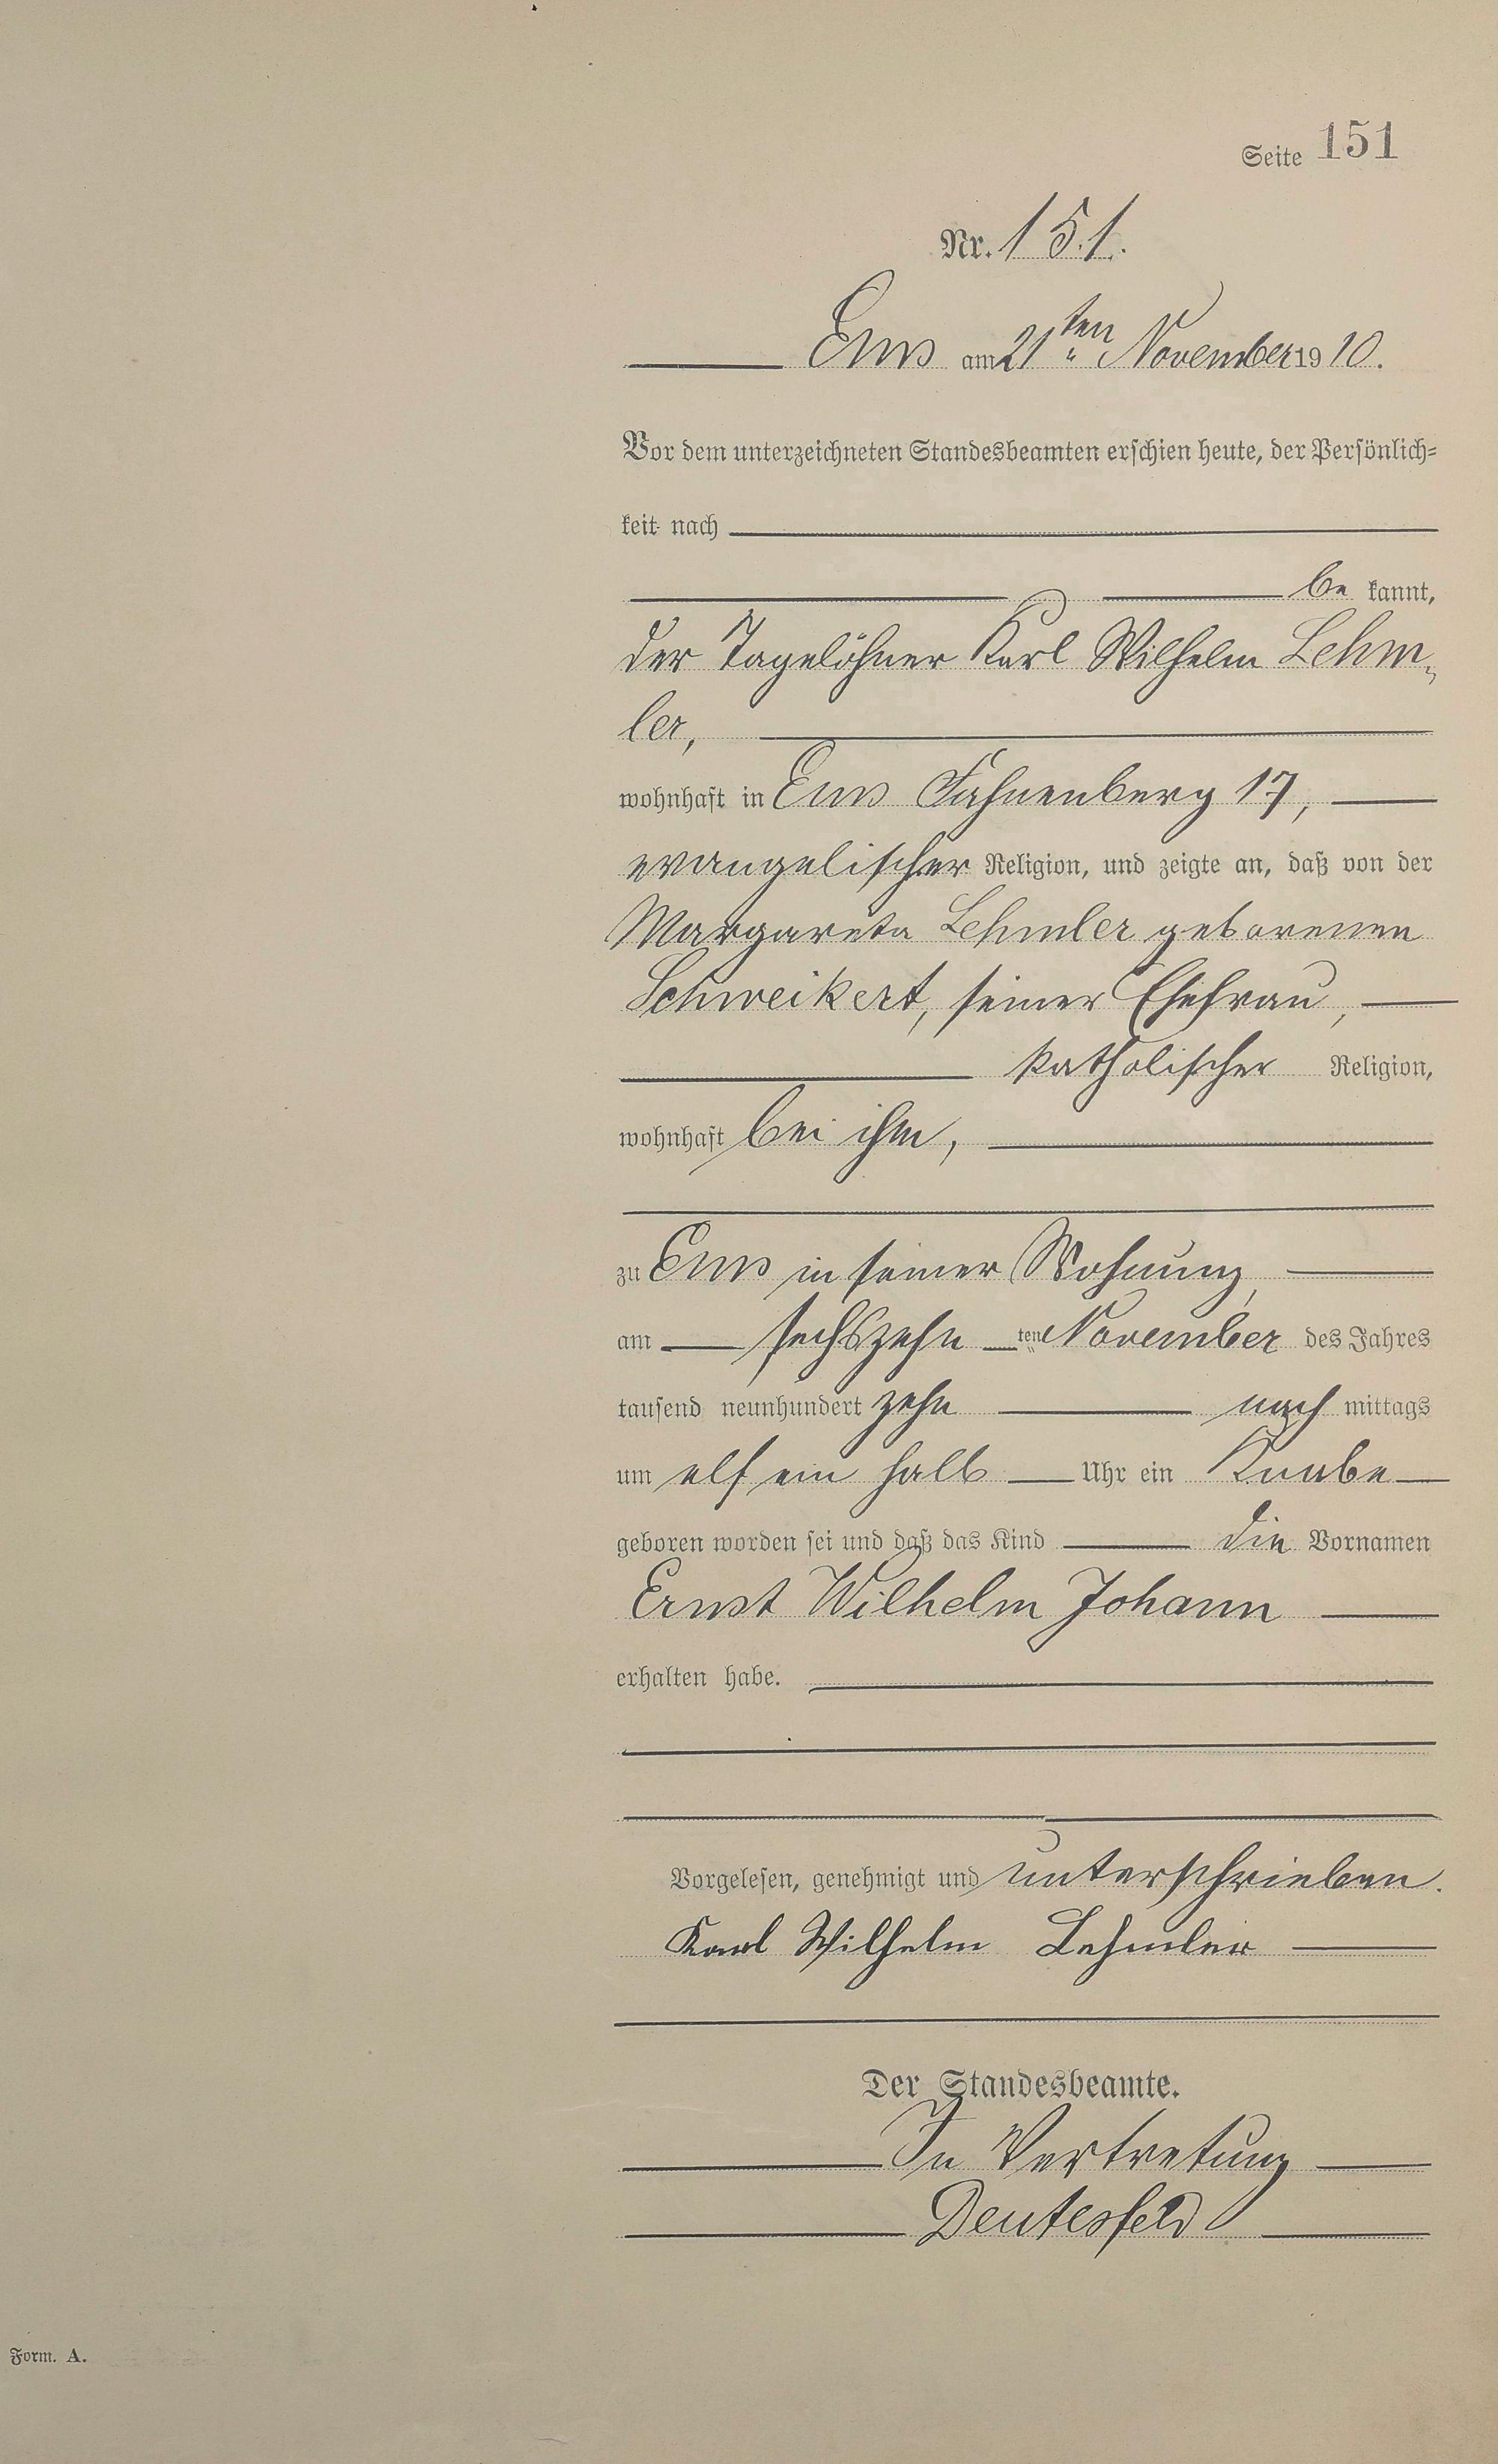 Seite 151
Nr. 151.
Ems am 21ten November 1910.
Vor dem unterzeichneten Standesbeamten erschien heute, der Persönlich-
keit nach
be kannt,
der Tagelöhner Karl Wilhelm Lehm-
ler,
wohnhaft in Ems Fahnenberg 17,
evangelischer Religion, und zeigte an, daß von der
Margareta Lehmler geborenen
Schweikert, seiner Ehefrau,
katholischer Religion,
wohnhaft bei ihm,
zu Ems in seiner Wohnung,
am sechszehn ten November des Jahres
tausend neunhundert zehn nach mittags
um elf ein halb Uhr ein Knabe
geboren worden sei und daß das Kind die Vornamen
Ernst Wilhelm Johann
erhalten habe.
Vorgelesen, genehmigt und unterschrieben.
Karl Wilhelm Lehmler
Der Standesbeamte.
In Vertretung
Deutesfeld
Form. A.